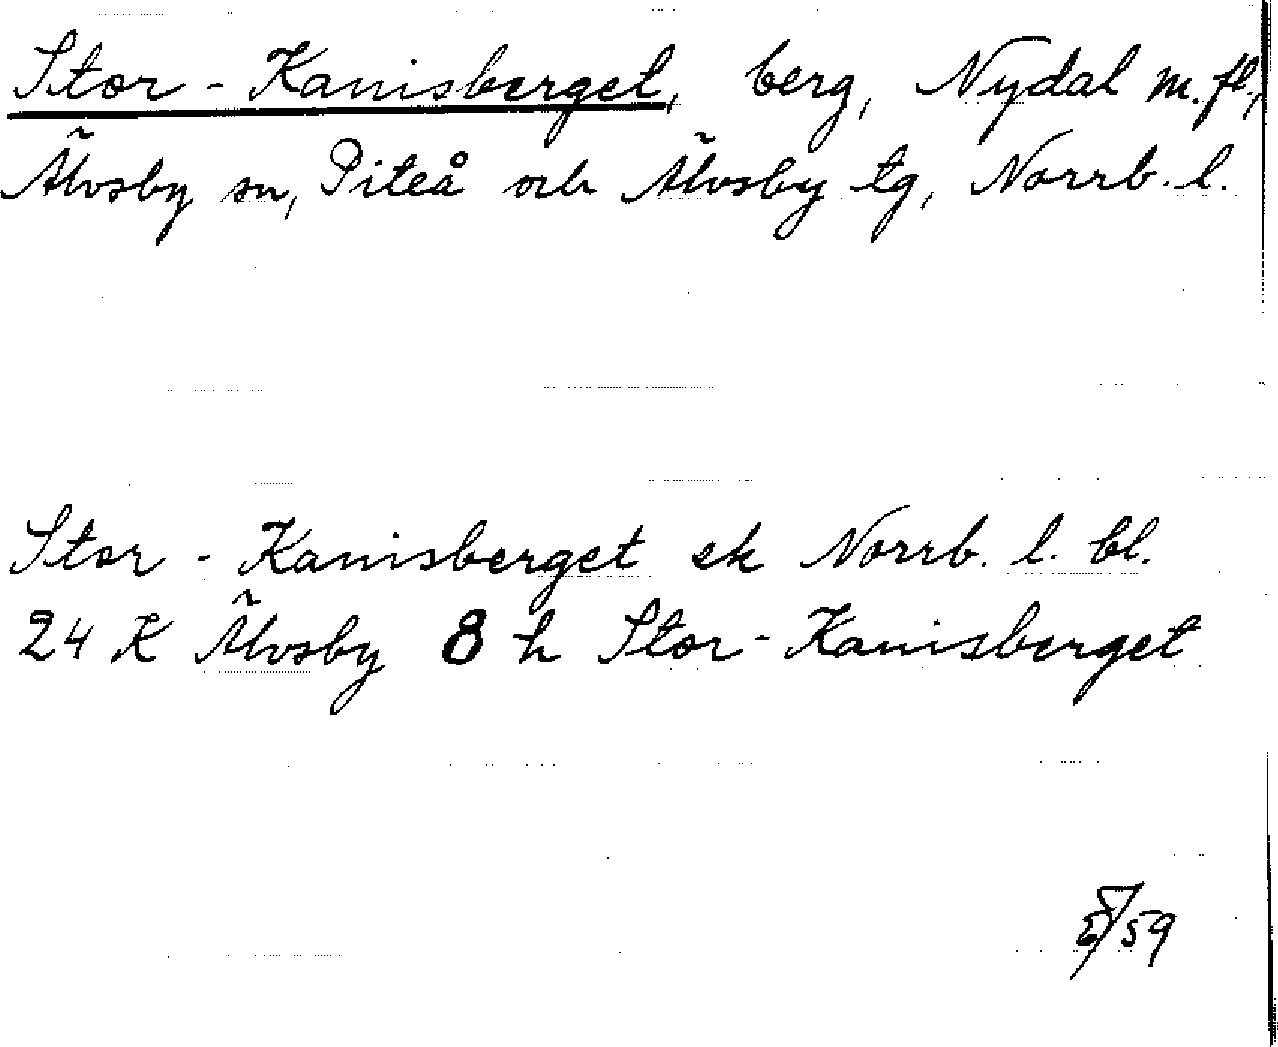 Stor-Kanisberget, berg, Nydal m. fl,
Älvsby sn, Piteå och Älvsby tg, Norrb. l.
Stor-Kanisberget ek Norrb. l. bl.
24 K Älvsby 8 h Stor-Kanisberget